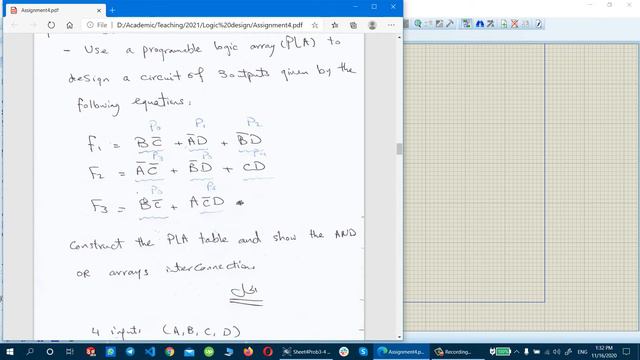 Assignment4.pdf
File | D:/Academic/Teaching/2021/Logic%20design/Assignment4.pdf
- Use a programable logic array (PLA) to
design a circuit of 3 outputs given by the
following equations.
P0 P1 P2
F1 = BC̅ + A̅D + B̅D
P3 P4
F2 = A̅C̅ + B̅D + CD
P0
F3 = BC̅ + AC̅D
Construct the PLA table and show the AND
OR arrays interconnection
4 inputs (A, B, C, D)
Sheet4Prob3-4
Assignment4.p...
Recording...
1:32 PM
11/16/2020